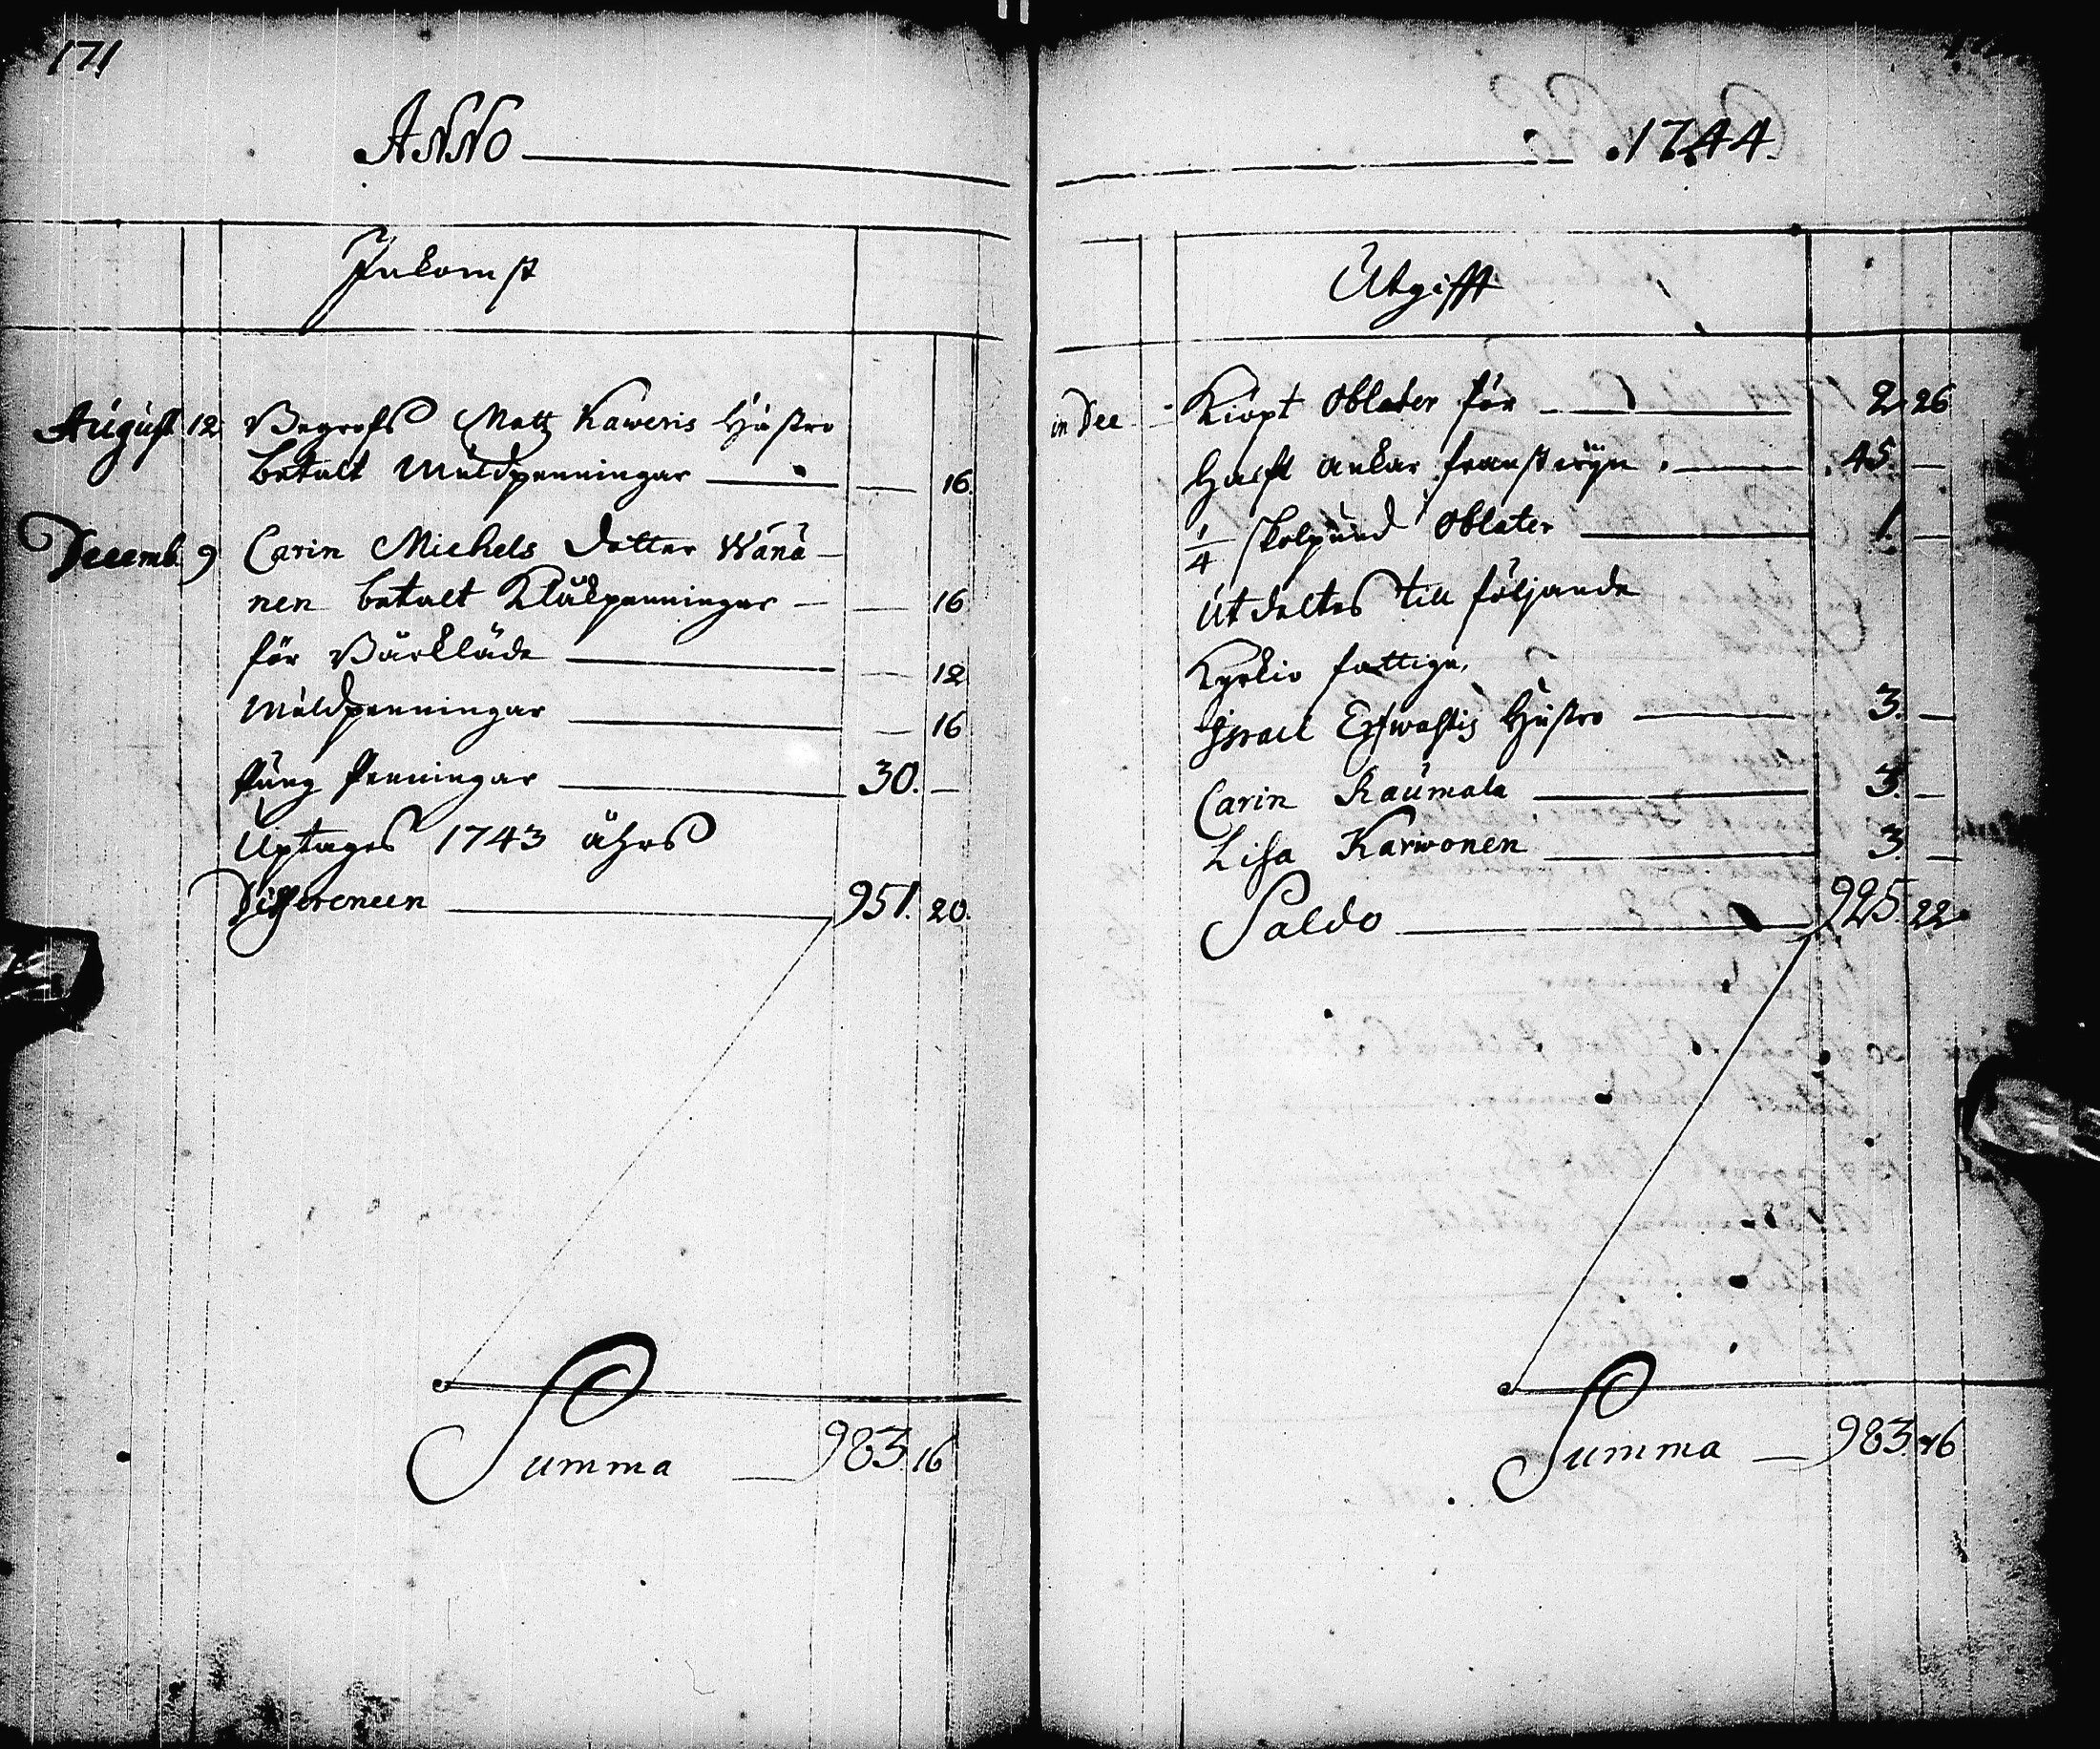 171
ANNO
Inkomst
August 12 Begrofs Matz Kaweris Hústro
betalt Múldpenningar — — 16.
Decemb. 9 Carin Michels dotter Wänä-
nen betalt Klåckpenningar — — 16
för Bårkläde — — 12
Múldpenningar — — 16
Púng Penningar — 30. —
Uptages 1743 åhrs
Differencen — 951. 20.
Summa — 983. 16
1744.
Utgifft
in Dec Kiöpt Oblater för — 2. 26
Halft ankar franst wijn — 45. —
1/4 skolpúnd Oblater — 1. —
Útdeltes till följande
Kyrkio fattiga.
Israel Hústro — 3. —
Carin Raúmala — 3. —
Lisa Karwonen — 3. —
Saldo — 925. 22.
Summa — 983. 16